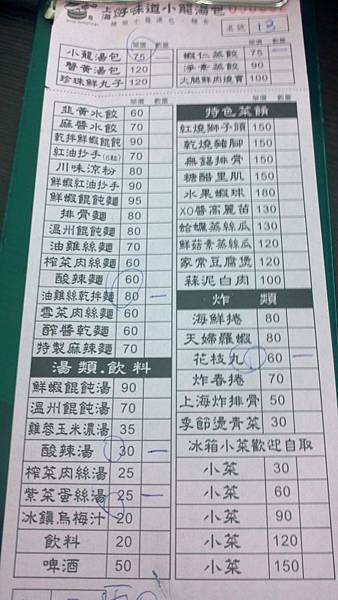 上海好味道小龍湯包
桌號 13
單價 數量
小龍湯包 75
蟹黃湯包 120
珍珠鮮丸子 120
單價 數量
蝦仁蒸餃 75
淨素蒸餃 90
大腸鮮肉燒賣 100
單價 數量
韭黃水餃 60
麻醬水餃 70
乾拌鮮蝦餛飩 90
紅油抄手(6粒) 70
川味涼粉 80
鮮蝦紅油抄手 90
鮮蝦餛飩麵 95
排骨麵 80
溫州餛飩麵 80
油雞絲麵 70
榨菜肉絲麵 60
酸辣麵 60
油雞絲乾拌麵 80
雪菜肉絲麵 60
酢醬乾麵 60
特製麻辣麵 70
湯類.飲料
鮮蝦餛飩湯 90
溫州餛飩湯 70
雞蓉玉米濃湯 35
酸辣湯 30
榨菜肉絲湯 25
紫菜蛋絲湯 25
冰鎮烏梅汁 20
飲料 20
啤酒 50
特色菜餚
紅燒獅子頭 150
乾燒豬腳 150
無錫排骨 150
糖醋里肌 150
水果蝦球 180
XO醬高麗苗 130
蛤蠣蒸絲瓜 130
鮮菇素蒸絲瓜 120
家常豆腐煲 120
蒜泥白肉 100
炸 類
海鮮捲 80
天婦羅蝦 80
花枝丸 60
炸春捲 70
上海炸排骨 50
季節燙青菜 30
冰箱小菜歡迎自取
小菜 30
小菜 60
小菜 90
小菜 120
小菜 150